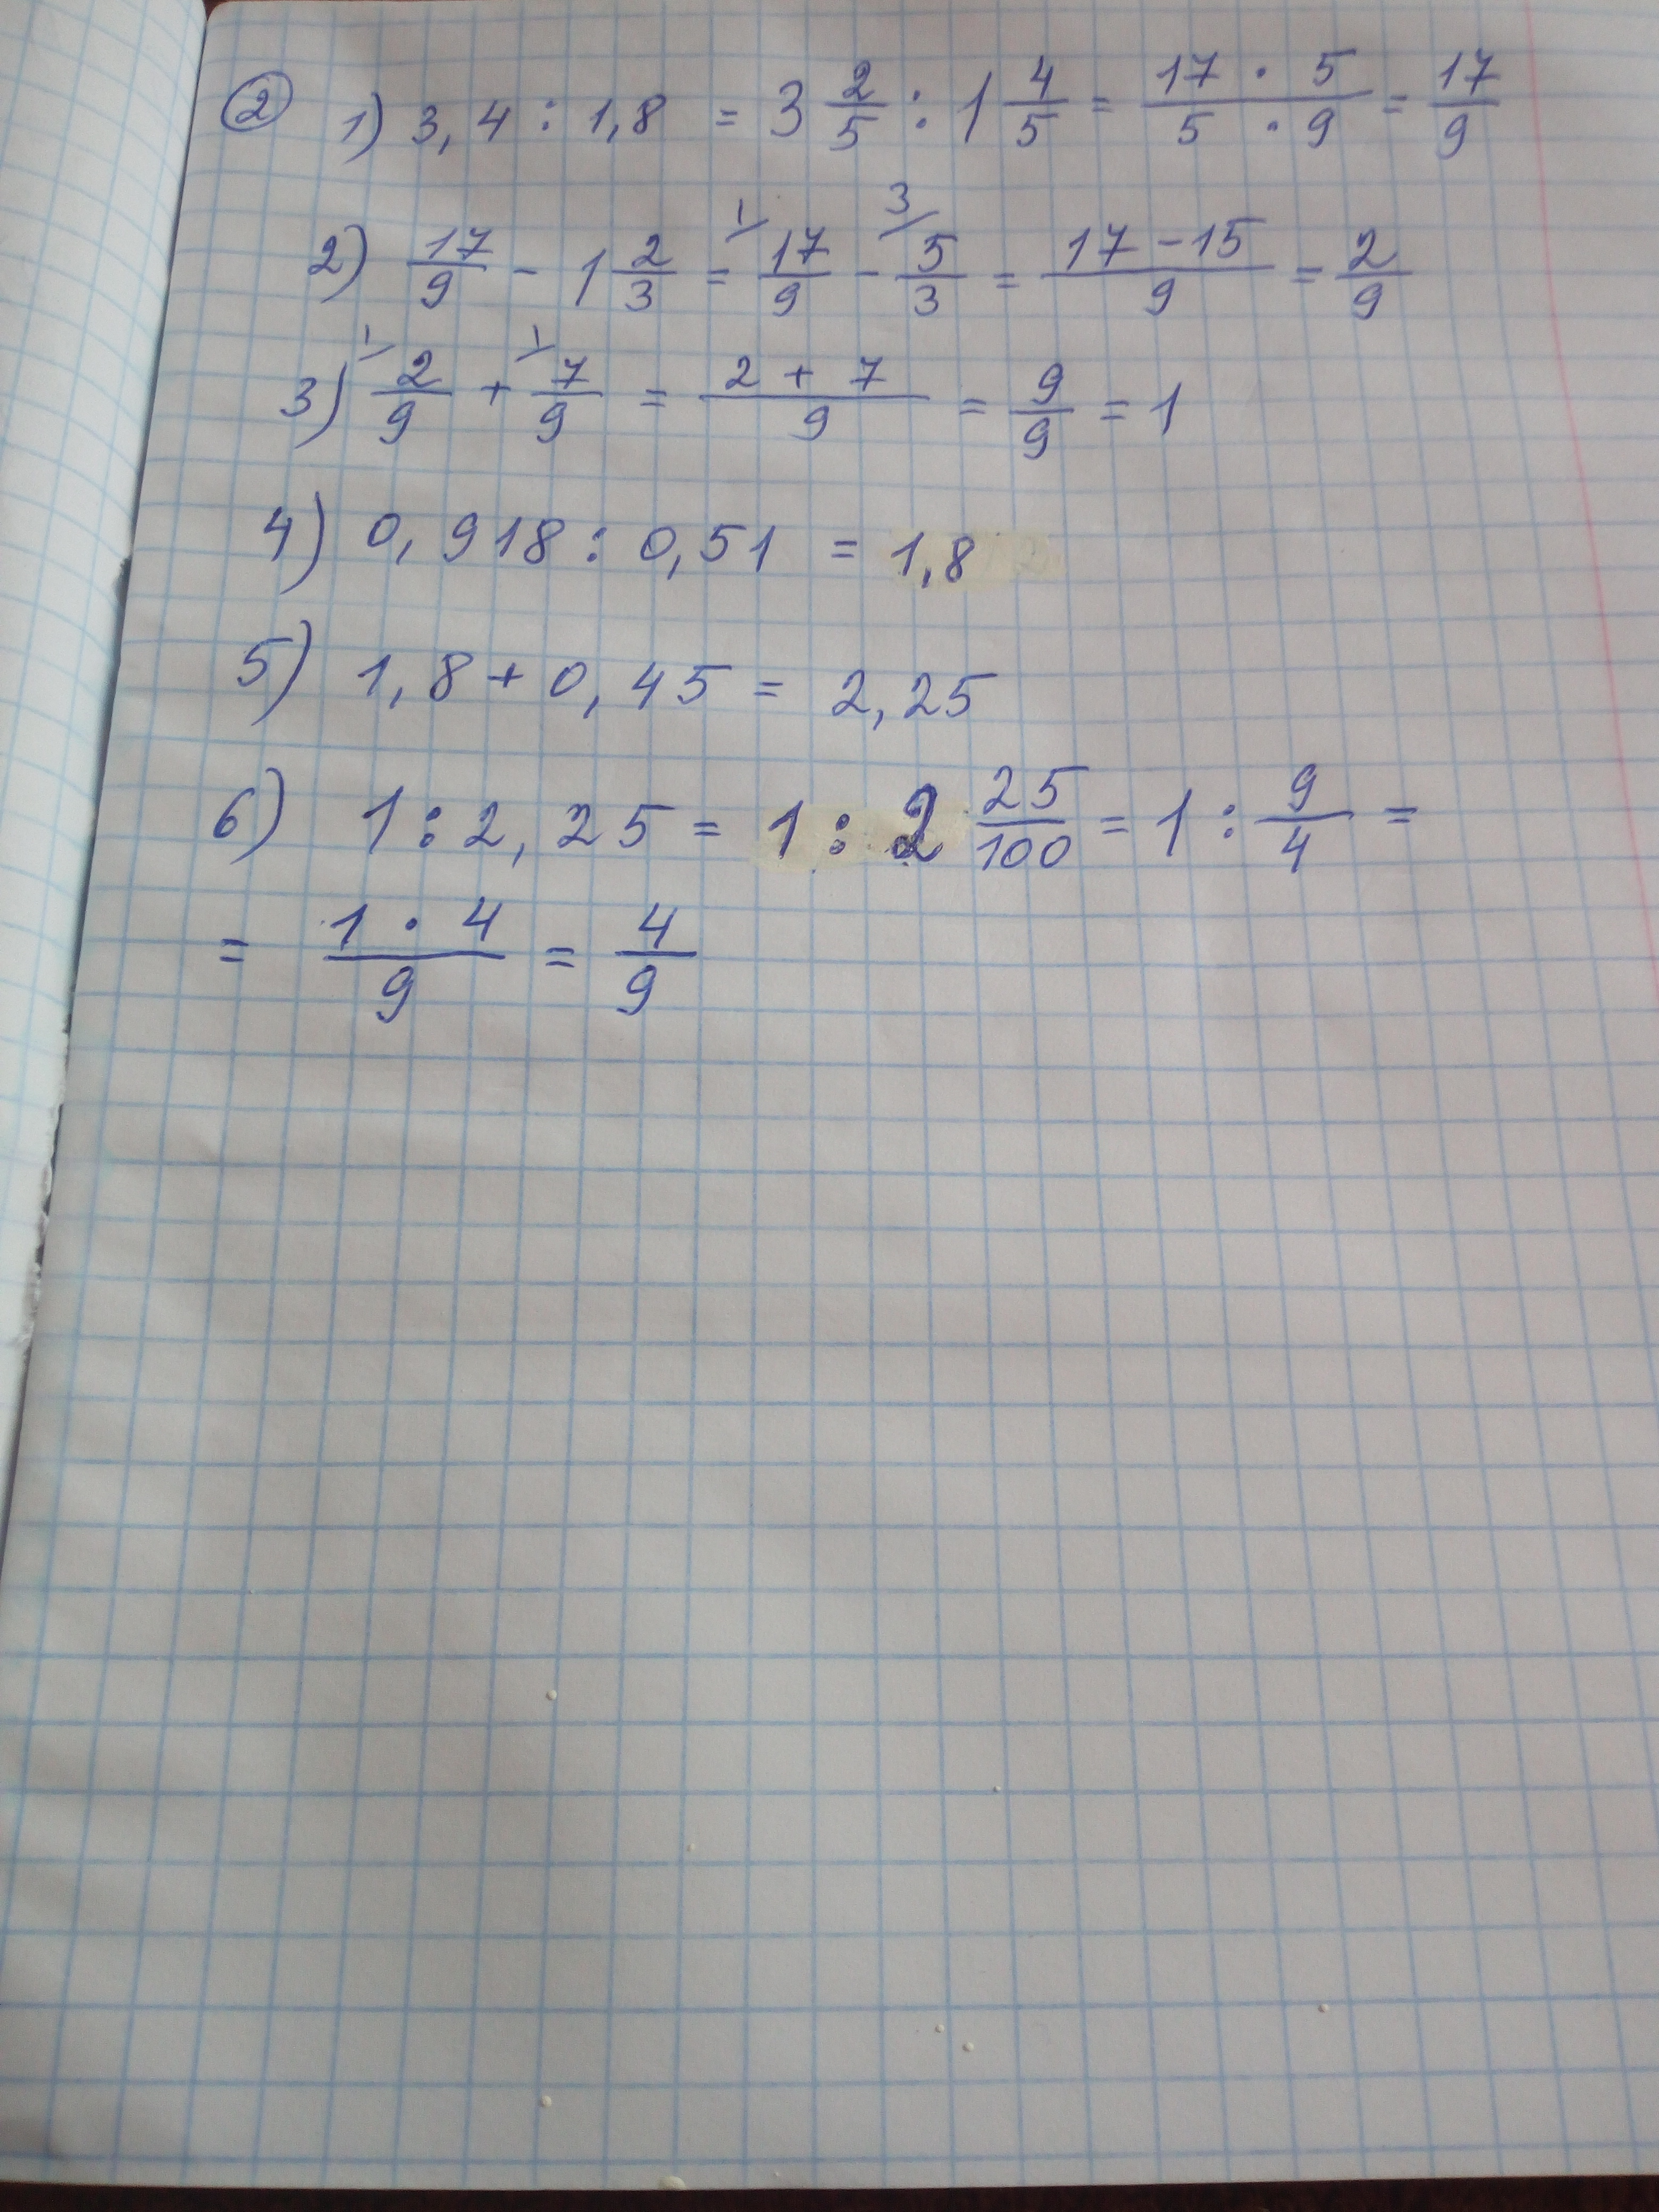 ② 1) 3,4 : 1,8 = 3 2/5 : 1 4/5 = 17 · 5 / 5 · 9 = 17/9
2) 17/9 - 1 2/3 = 1/ 17/9 - 3/ 5/3 = 17 - 15 / 9 = 2/9
3) 1/ 2/9 + 1/ 7/9 = 2 + 7 / 9 = 9/9 = 1
4) 0,918 : 0,51 = 1,8
5) 1,8 + 0,45 = 2,25
6) 1 : 2,25 = 1 : 2 25/100 = 1 : 9/4 =
= 1 · 4 / 9 = 4/9